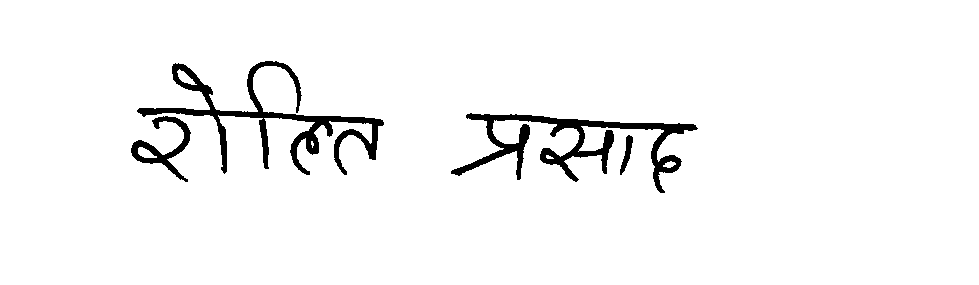 रोलित प्रसाद